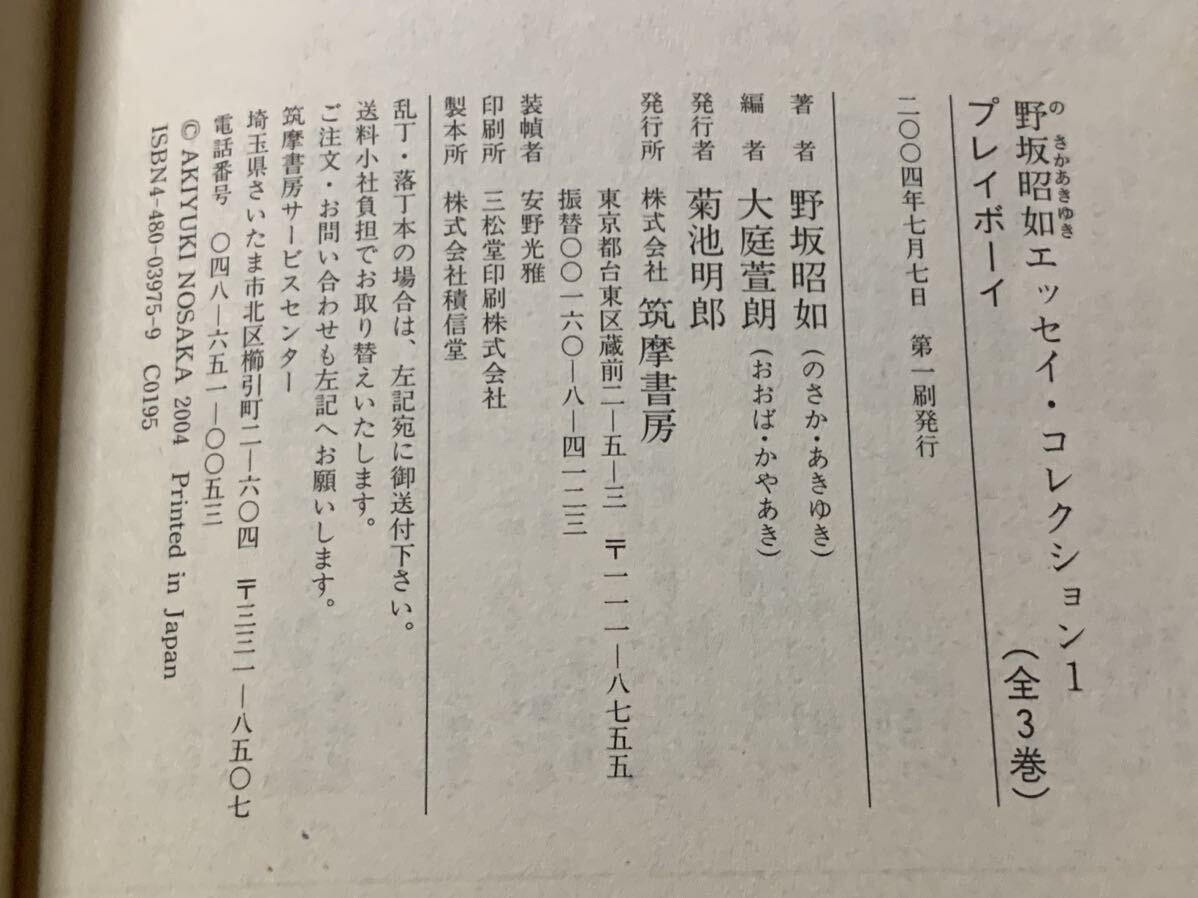 野坂昭如エッセイ・コレクション1
の さかあきゆき
プレイボーイ
(全3巻)
二〇〇四年七月七日 第一刷発行
著者 野坂昭如(のさか・あきゆき)
編者 大庭萱朗(おおば・かやあき)
発行者 菊池明郎
発行所 株式会社 筑摩書房
東京都台東区蔵前二―五―三 〒一一一―八七五五
振替〇〇一六〇―八―四一二三
装幀者 安野光雅
印刷所 三松堂印刷株式会社
製本所 株式会社積信堂
乱丁・落丁本の場合は、左記宛に御送付下さい。
送料小社負担でお取り替えいたします。
ご注文・お問い合わせも左記へお願いします。
筑摩書房サービスセンター
埼玉県さいたま市北区櫛引町二―六〇四 〒三三一―八五〇七
電話番号 〇四八―六五一―〇〇五三
© AKIYUKI NOSAKA 2004 Printed in Japan
ISBN4-480-03975-9 C0195